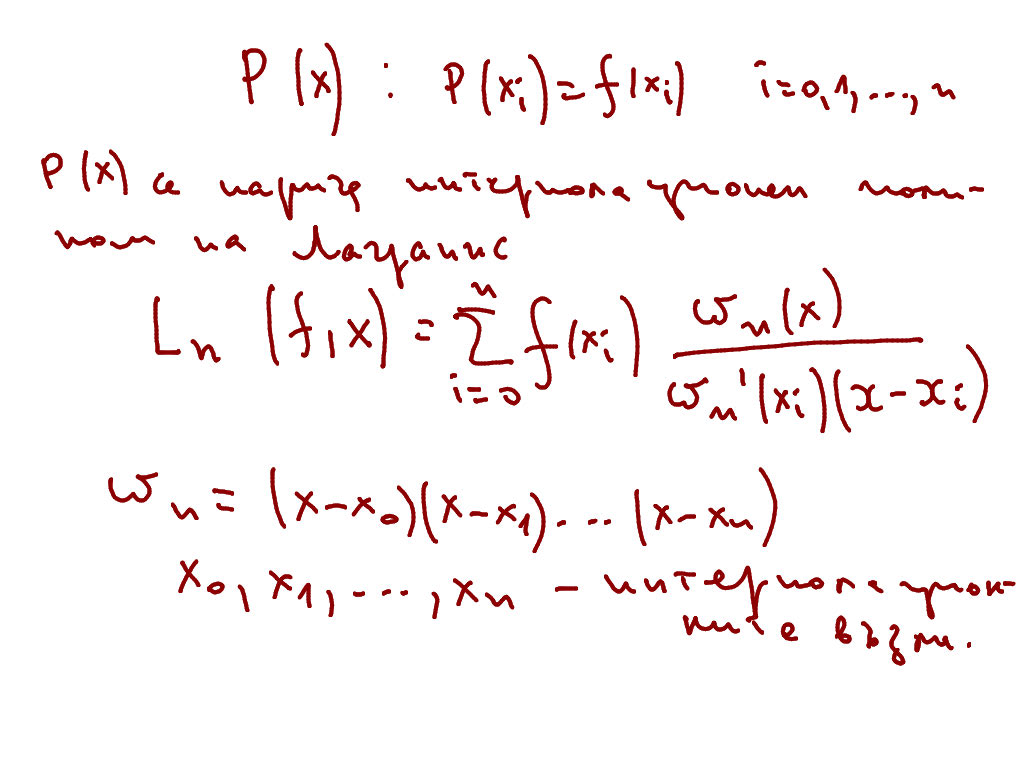 P(x) : P(xᵢ) = f(xᵢ) i=0,1,...,n
P(x) се нарича интерполационен поли-
ном на Лагранж
Lₙ (f, x) = ∑ⁿᵢ₌₀ f(xᵢ) ωₙ(x) / ωₙ'(xᵢ)(x - xᵢ)
ωₙ = (x-x₀)(x-x₁)...(x-xₙ)
x₀, x₁, ..., xₙ - интерполацион-
ните възли.